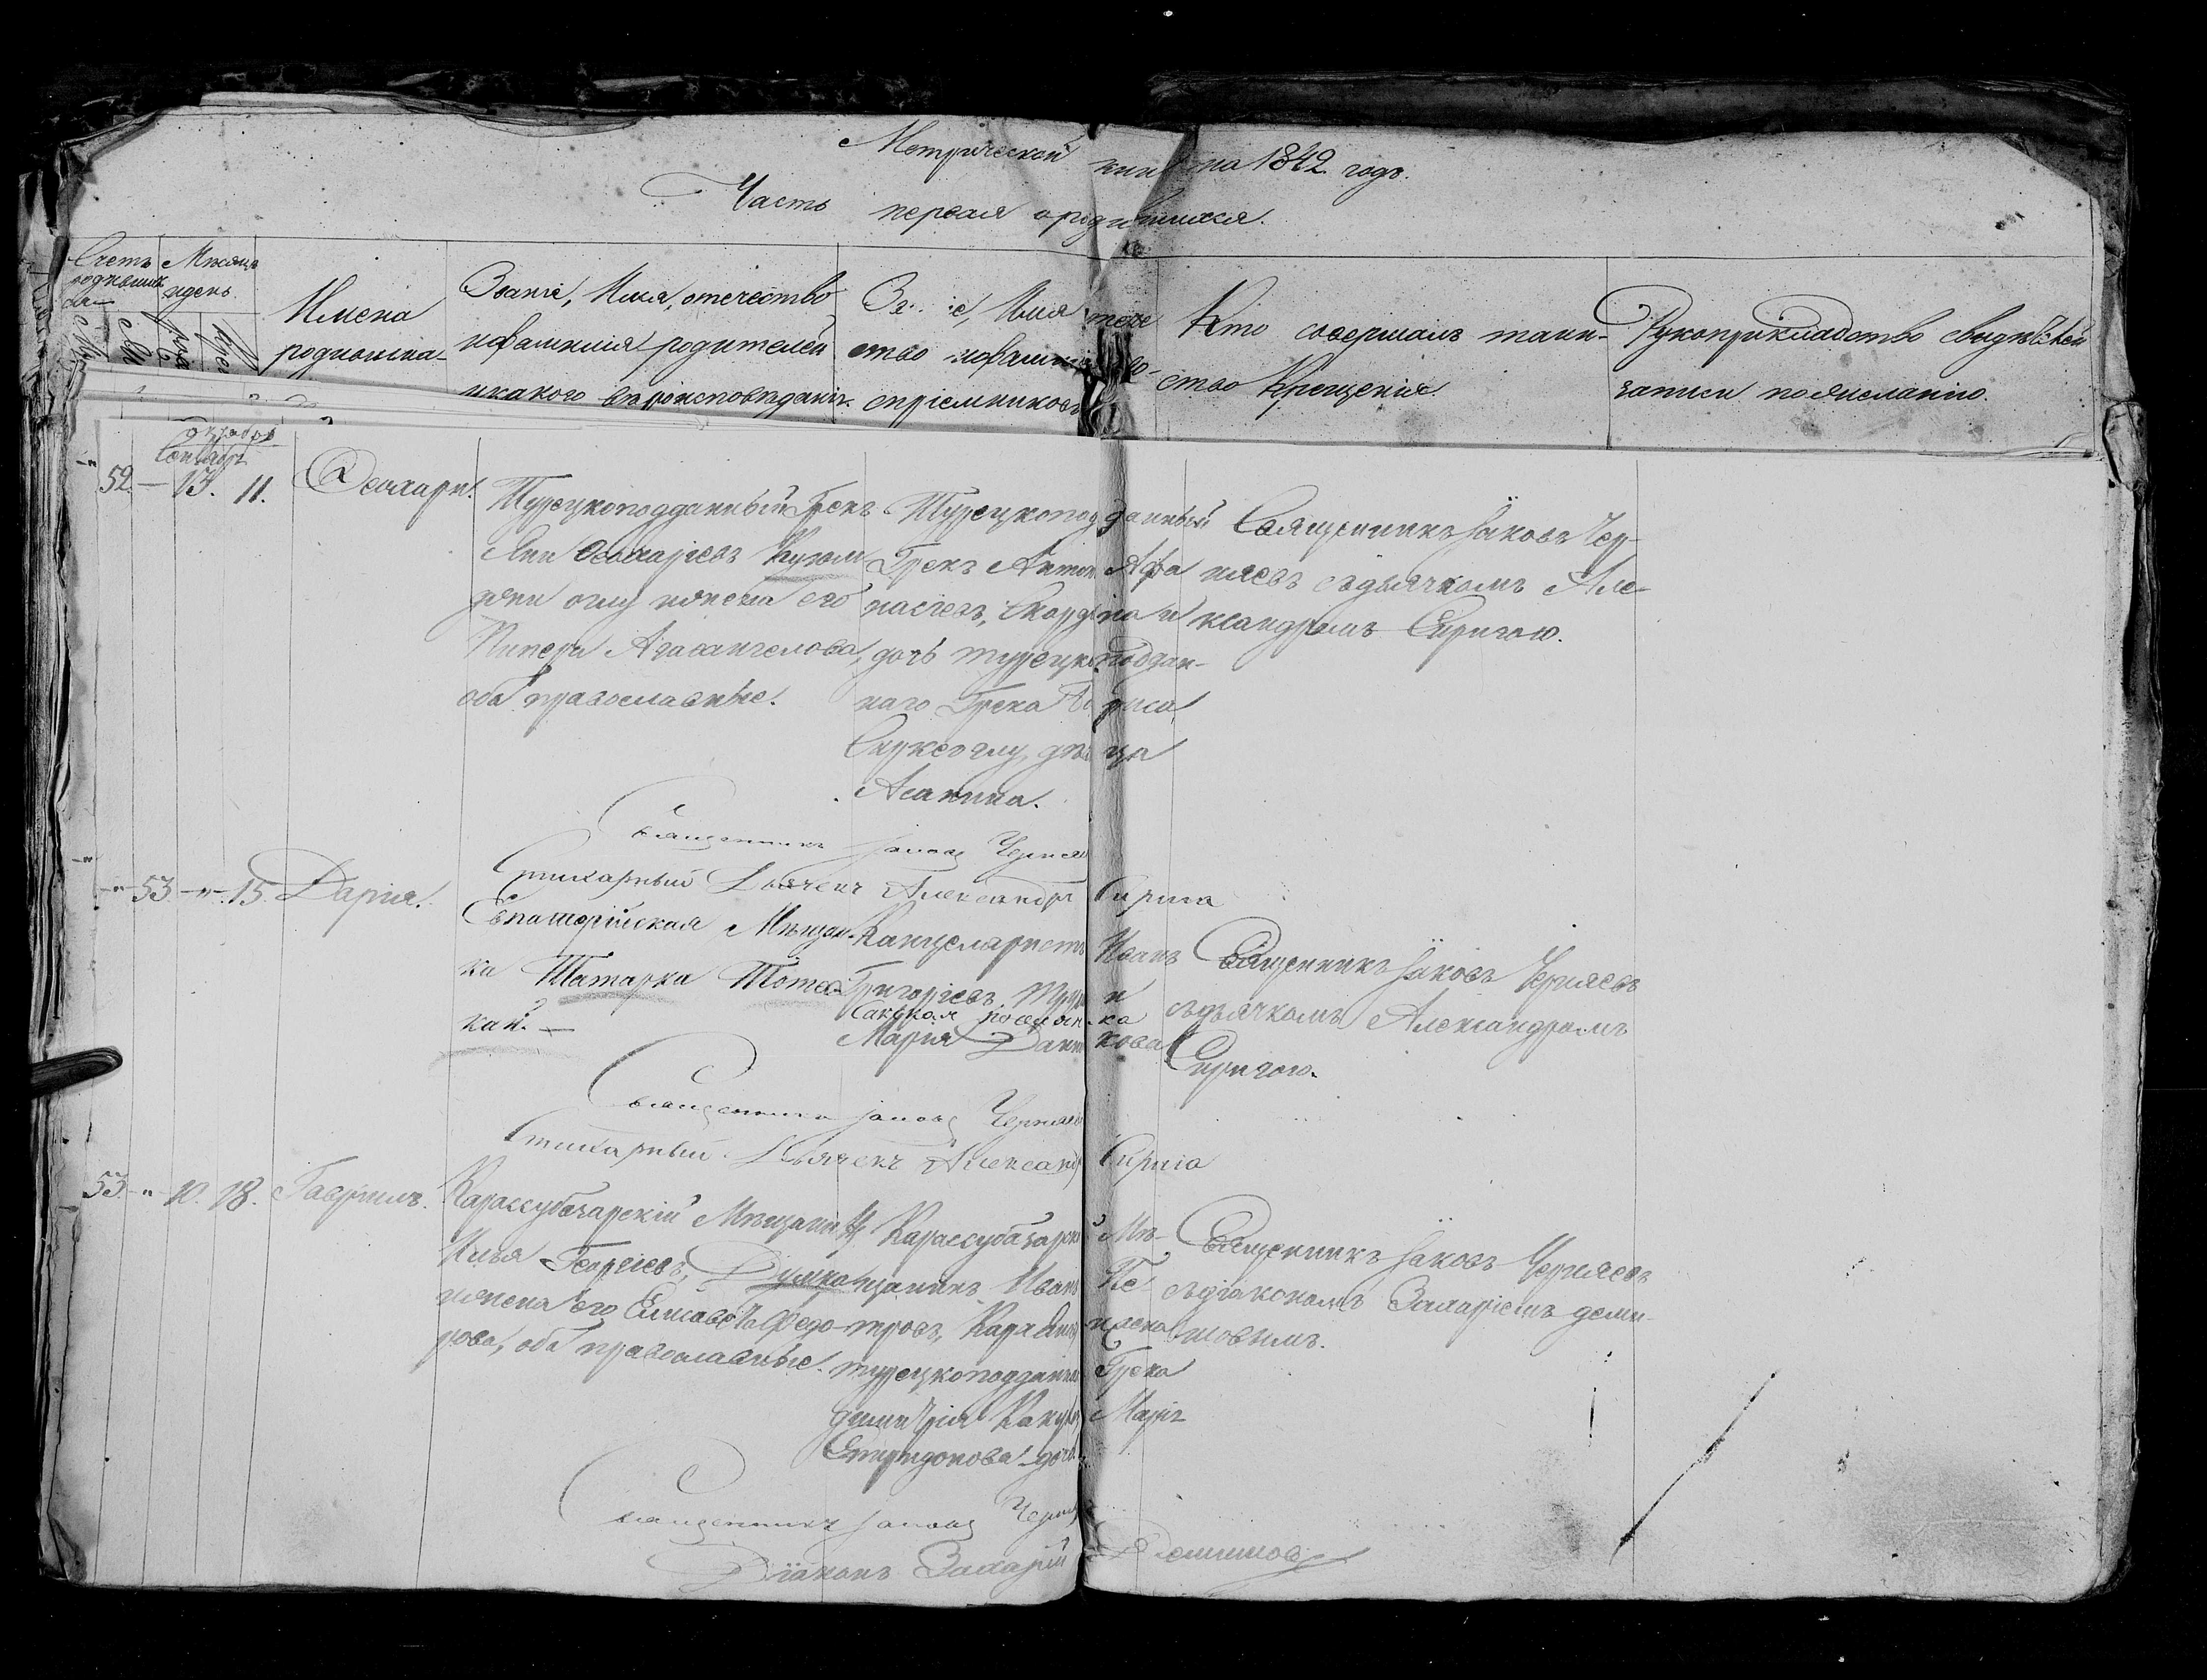 Метрической книги на 1842. годъ.
Часть первая о родившихся.
Счетъ родившихся
Мѣсяцъ и день.
Имена родившихъ
Званіе, Имя, отечество
и фамилия родителей
и какого вѣроисповѣданія.
Званіе, Имя, отече
ство и фамилия во-
спріемниковъ
Кто совершалъ таин-
ство Крещенія.
Рукоприкладство свидѣтелей
записи по желанію.
Октябрь
Сентябрь
52. 13. 11. Ѳеохари.
Турецкоподданный Грекъ
Яни Ѳеохаріевъ
оглу и жена его
Пипера Агаѳангелова,
оба православные.
Турецкоподданный
Грекъ Антон Афа
насіевъ, и
дочь турецкоподдан-
наго Грека
дѣвица
Асанина.
Священникъ Іаковъ Чер-
няевъ съ дьячкомъ Але-
ксандромъ Сиригою.
Священникъ Іаковъ Черняев
Стихарный Дьячекъ Александръ Сирига
53 15. Дарія.
Евпаторійская Мѣщан-
ка Татарка
кай.
Канцеляристъ Иванъ
Григоріевъ и
поселянка
Марія
Священникъ Іаковъ Черняевъ
съ дьячкомъ Александромъ
Сиригою.
Священникъ Іаковъ Черняевъ
Стихарный Дьячекъ Александръ Сирига
53. 10. 18. Гавріилъ.
Карассубазарскій Мѣщанинъ
Илья Георгіевъ, Думко
и жена его Елисавета Федо-
рова, оба православные.
Карассубазарскій Мѣ-
щанинъ Иванъ Пе
тровъ, и
турецкоподданнаго Грека
Димитрія Марія
Спиридонова дочь.
Священникъ Іаковъ Черняевъ
съ діакономъ Захаріемъ Деми-
шовымъ.
Священникъ Іаковъ Черняевъ
Діаконъ Захарій Демишовъ